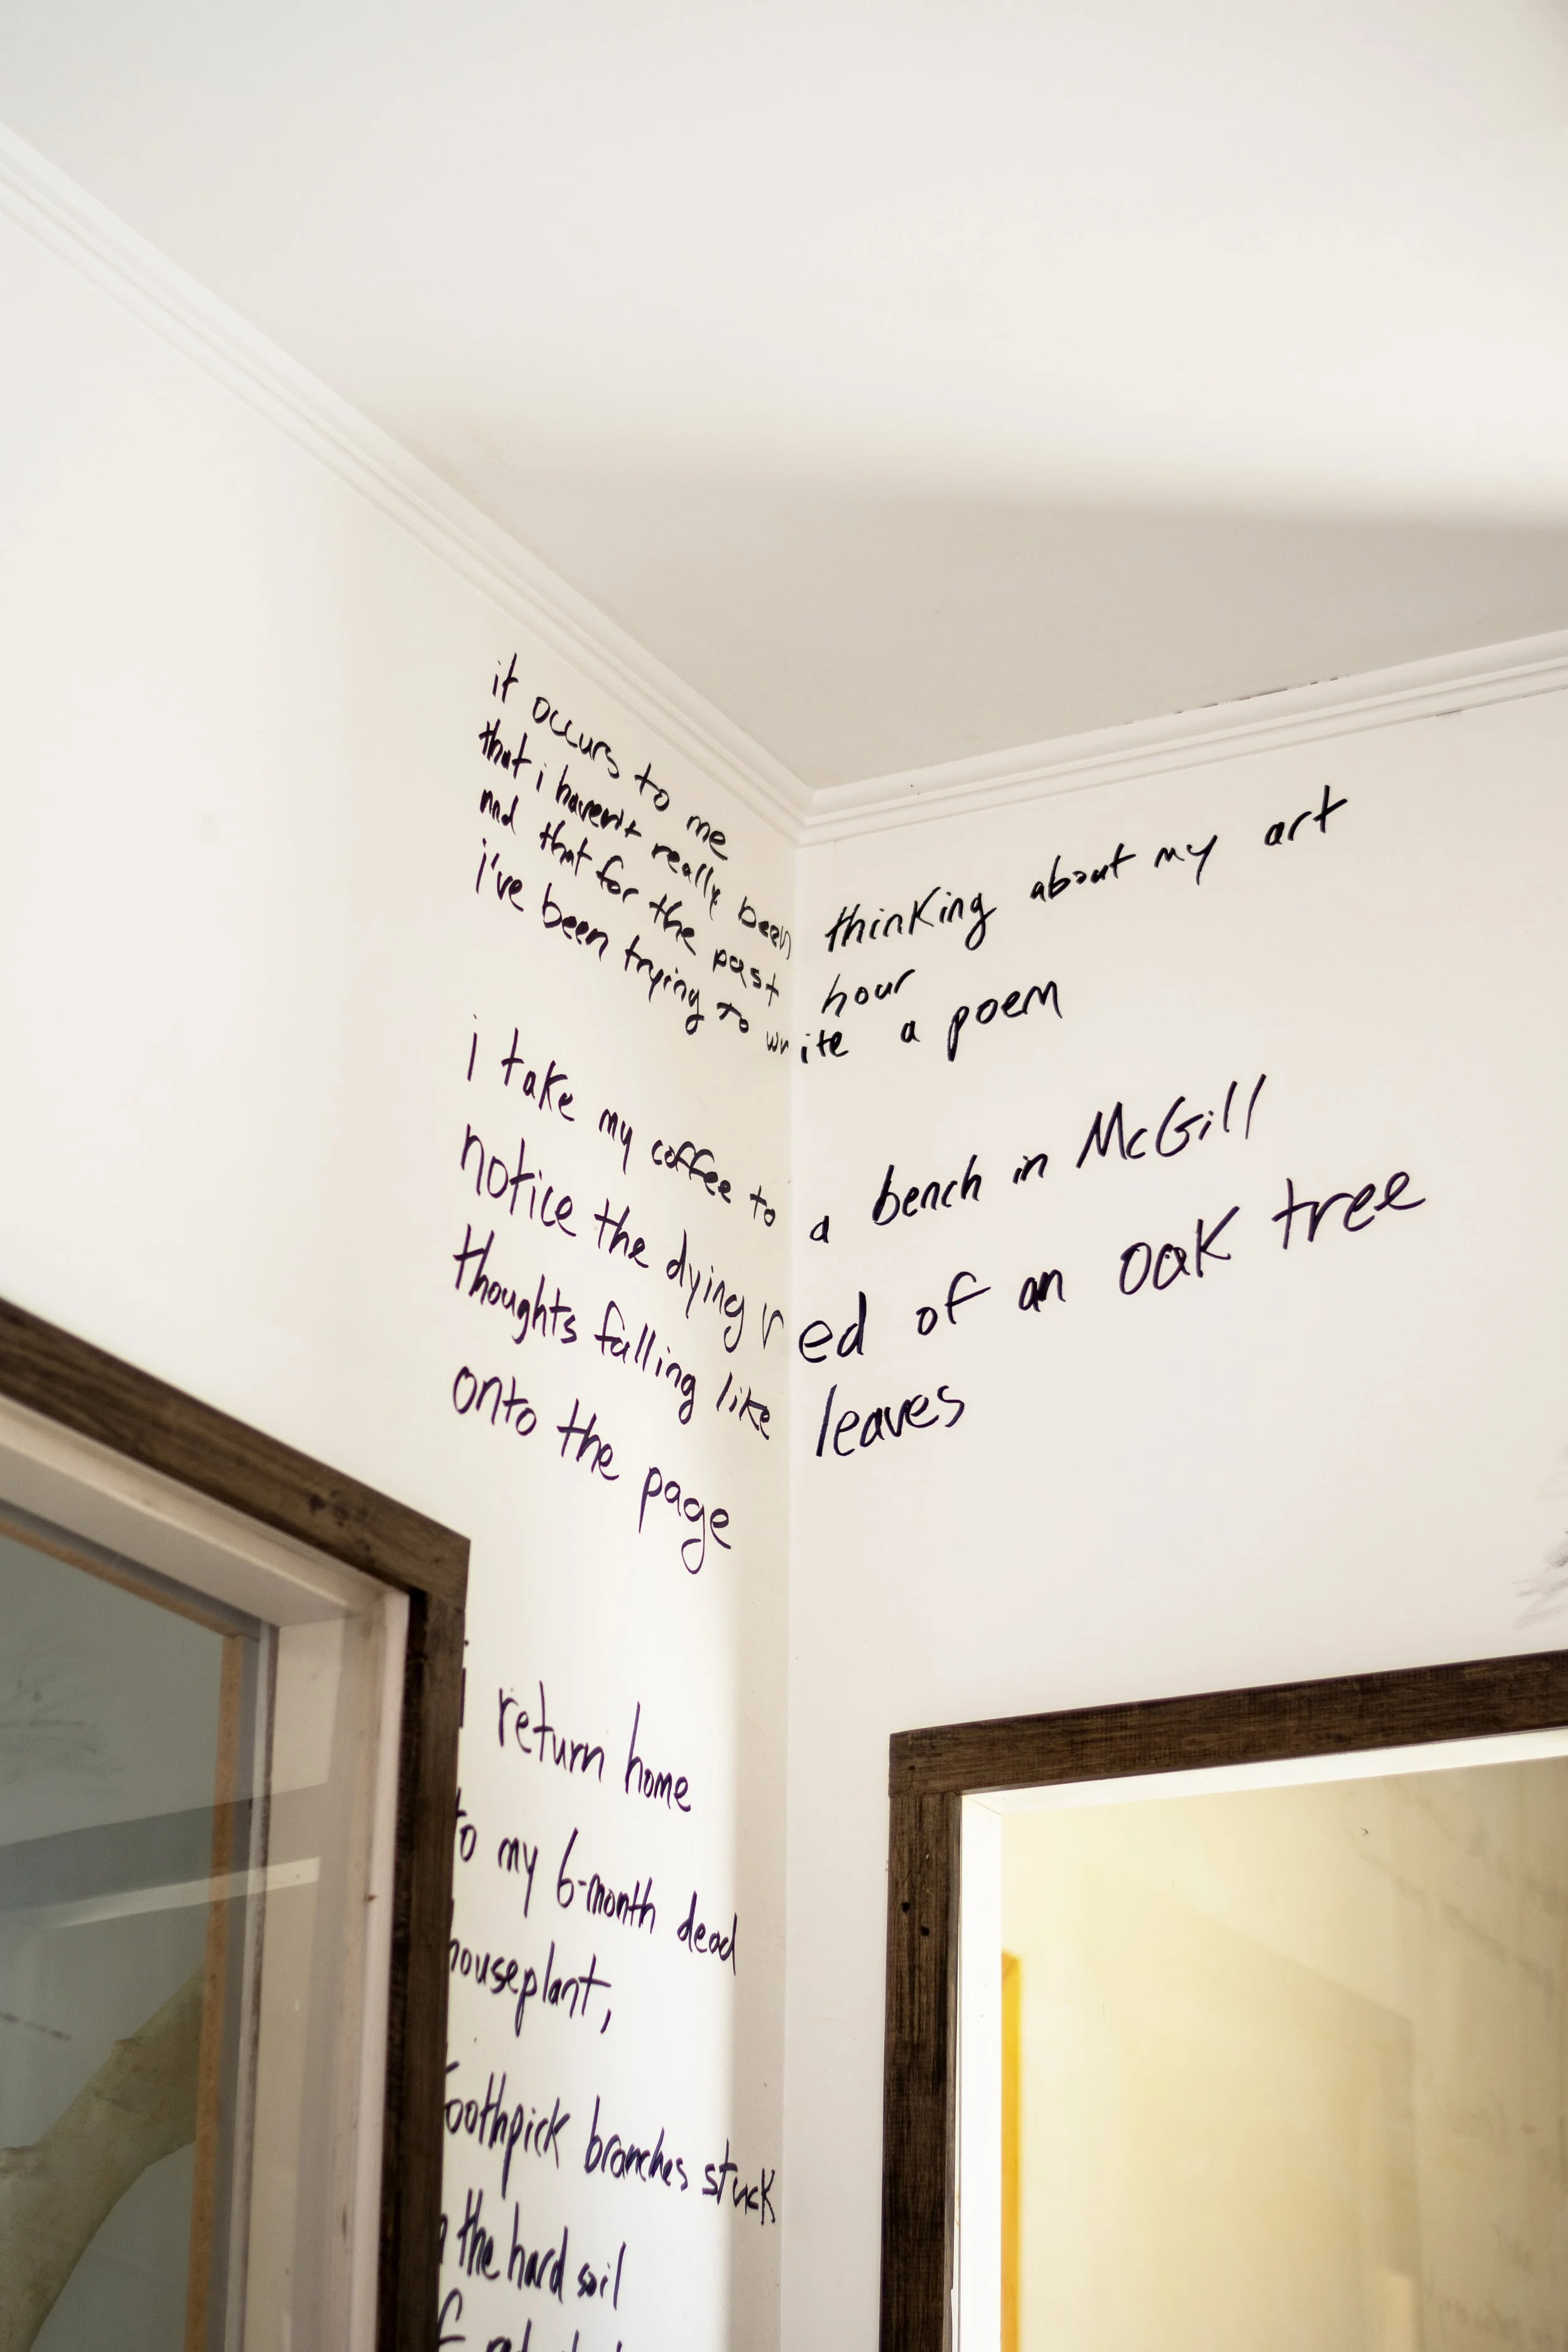 it occurs to me
that i haven't really been thinking about my art
and that for the past hour
i've been trying to write a poem
i take my coffee to a bench in McGill
notice the dying red of an oak tree
thoughts falling like leaves
onto the page
i return home
to my 6-month dead
houseplant,
toothpick branches stuck
the hard soil